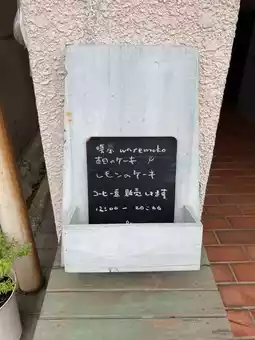 喫茶 waremoko
本日のケーキ
レモンのケーキ
コーヒー豆 販売してます
12:00ー 20:00